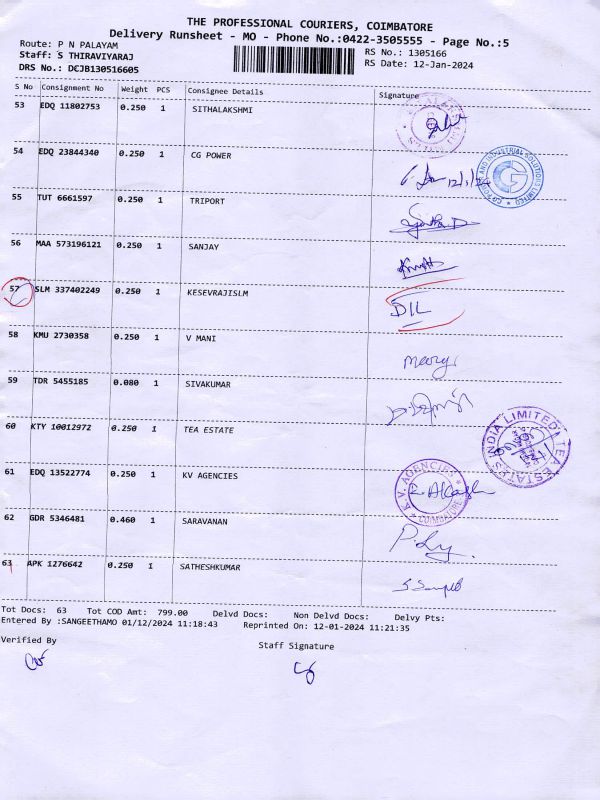 THE PROFESSIONAL COURIERS, COIMBATORE
Delivery Runsheet - MO - Phone No.:0422-3505555 - Page No.:5
Route: P N PALAYAM
Staff: S THIRAVIYARAJ
DRS No.: DCJB130516605
RS No.: 1305166
RS Date: 12-Jan-2024
S No Consignment No Weight PCS Consignee Details Signature
53 EDQ 11802753 0.250 1 SITHALAKSHMI
54 EDQ 23844340 0.250 1 CG POWER
12/1/24
CG POWER AND INDUSTRIAL SOLUTIONS LIMITED
55 TUT 6661597 0.250 1 TRIPORT
56 MAA 573196121 0.250 1 SANJAY
57 SLM 337402249 0.250 1 KESEVRAJISLM
DIL
58 KMU 2730358 0.250 1 V MANI
59 TDR 5455185 0.080 1 SIVAKUMAR
60 KTY 10012972 0.250 1 TEA ESTATE
TEA ESTATES INDIA LIMITED
61 EDQ 13522774 0.250 1 KV AGENCIES
K.V. AGENCIES
COIMBATORE
62 GDR 5346481 0.460 1 SARAVANAN
63 APK 1276642 0.250 1 SATHESHKUMAR
Tot Docs: 63 Tot COD Amt: 799.00 Delvd Docs: Non Delvd Docs: Delvy Pts:
Entered By :SANGEETHAMO 01/12/2024 11:18:43 Reprinted On: 12-01-2024 11:21:35
Verified By
Staff Signature